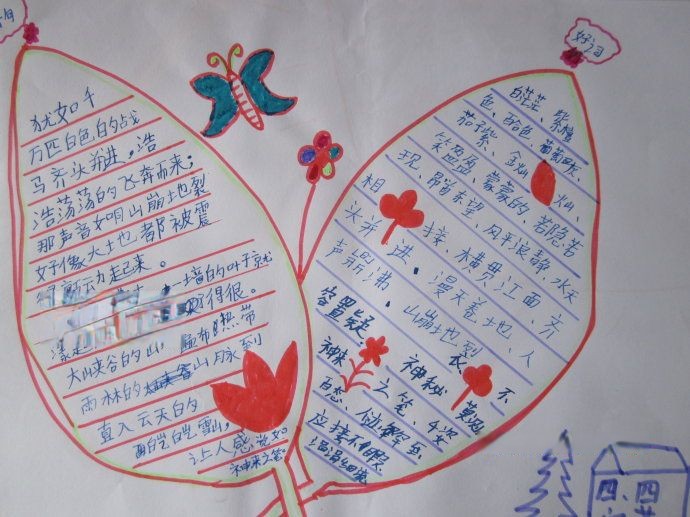 犹如千
万匹白色的战
马齐头并进，浩
浩荡荡的飞奔而来；
那声音如同山崩地裂
好像大地都被震
得颤动起来。
一墙的叶子就
得很。
大峡谷的山，遍布热带
雨林的山脉到
直入云天的
皑皑雪山，
让人感觉如
神来之笔。
好词
白茫茫、紫檀
色、鸽色、葡萄灰、
茄子紫、金灿灿、
笑盈盈、蒙蒙的、若隐若
现、昂首东望、风平浪静、水天
相接、横贯江面、齐
头并进、漫天盖地、人
声鼎沸、山崩地裂、
容置疑、
神来之笔、神秘莫测、
应接不暇
四、四